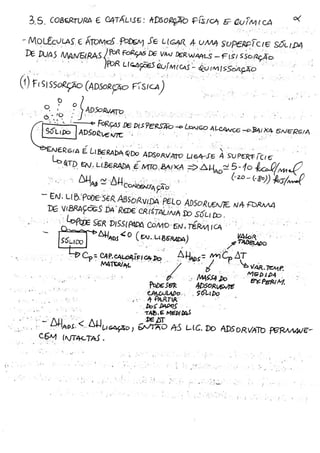 3.5. COBERTURA E CATÁLISE: ADSORÇÃO FÍSICA E QUÍMICA
- MOLÉCULAS E ÁTOMOS PODEM SE LIGAR A UMA SUPERFÍCIE SÓLIDA
DE DUAS MANEIRAS
POR FORÇAS DE VAN DER WAALS - FISISSORÇÃO
POR LIGAÇÕES QUÍMICAS - QUIMISSORÇÃO
① FISISSORÇÃO (ADSORÇÃO FÍSICA)
ADSORVATO
FORÇAS DE DISPERSÃO → LONGO ALCANCE → BAIXA ENERGIA
SÓLIDO ADSORVENTE
ENERGIA É LIBERADA QDO ADSORVATO LIGA-SE À SUPERFÍCIE
QTD EN. LIBERADA É MTO BAIXA ⇒ ΔH_AD ≃ 5-10 kcal/mol
(-20 - (-80)) kJ/mol
ΔH_AD ≃ ΔH_CONDENSAÇÃO
- EN. LIB. PODE SER ABSORVIDA PELO ADSORVENTE NA FORMA
DE VIBRAÇÕES DA REDE CRISTALINA DO SÓLIDO.
PODE SER DISSIPADA COMO EN. TÉRMICA
- SÓLIDO → ΔH_ADS < 0 (EN. LIBERADA)
VALOR
TABELADO
Cp = CAP. CALORÍFICA DO MATERIAL
ΔH_ADS = m Cp ΔT
VAR. TEMP.
MEDIDA
EXPERIM.
MASSA DO
ADSORVENTE
SÓLIDO
PODE SER
CALCULADO
A PARTIR
DOS DADOS
TAB. E MEDIDAS
DE ΔT
- ΔH_ADS. < ΔH_LIGAÇÃO, ENTÃO AS LIG. DO ADSORVATO PERMANE-
CEM INTACTAS.